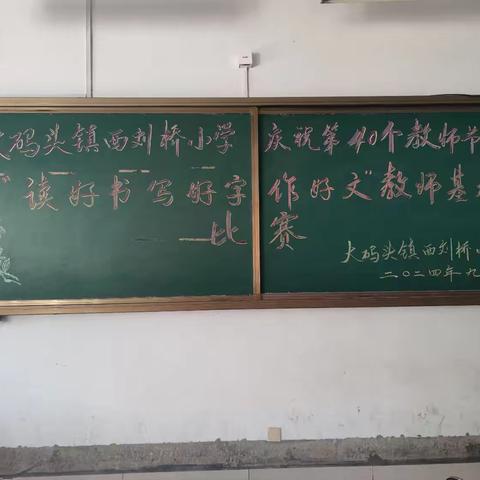 大码头镇西刘桥小学 庆祝第40个教师节
“读好书写好字 作好文”教师基
比赛
大码头镇西刘桥
二〇二四年九